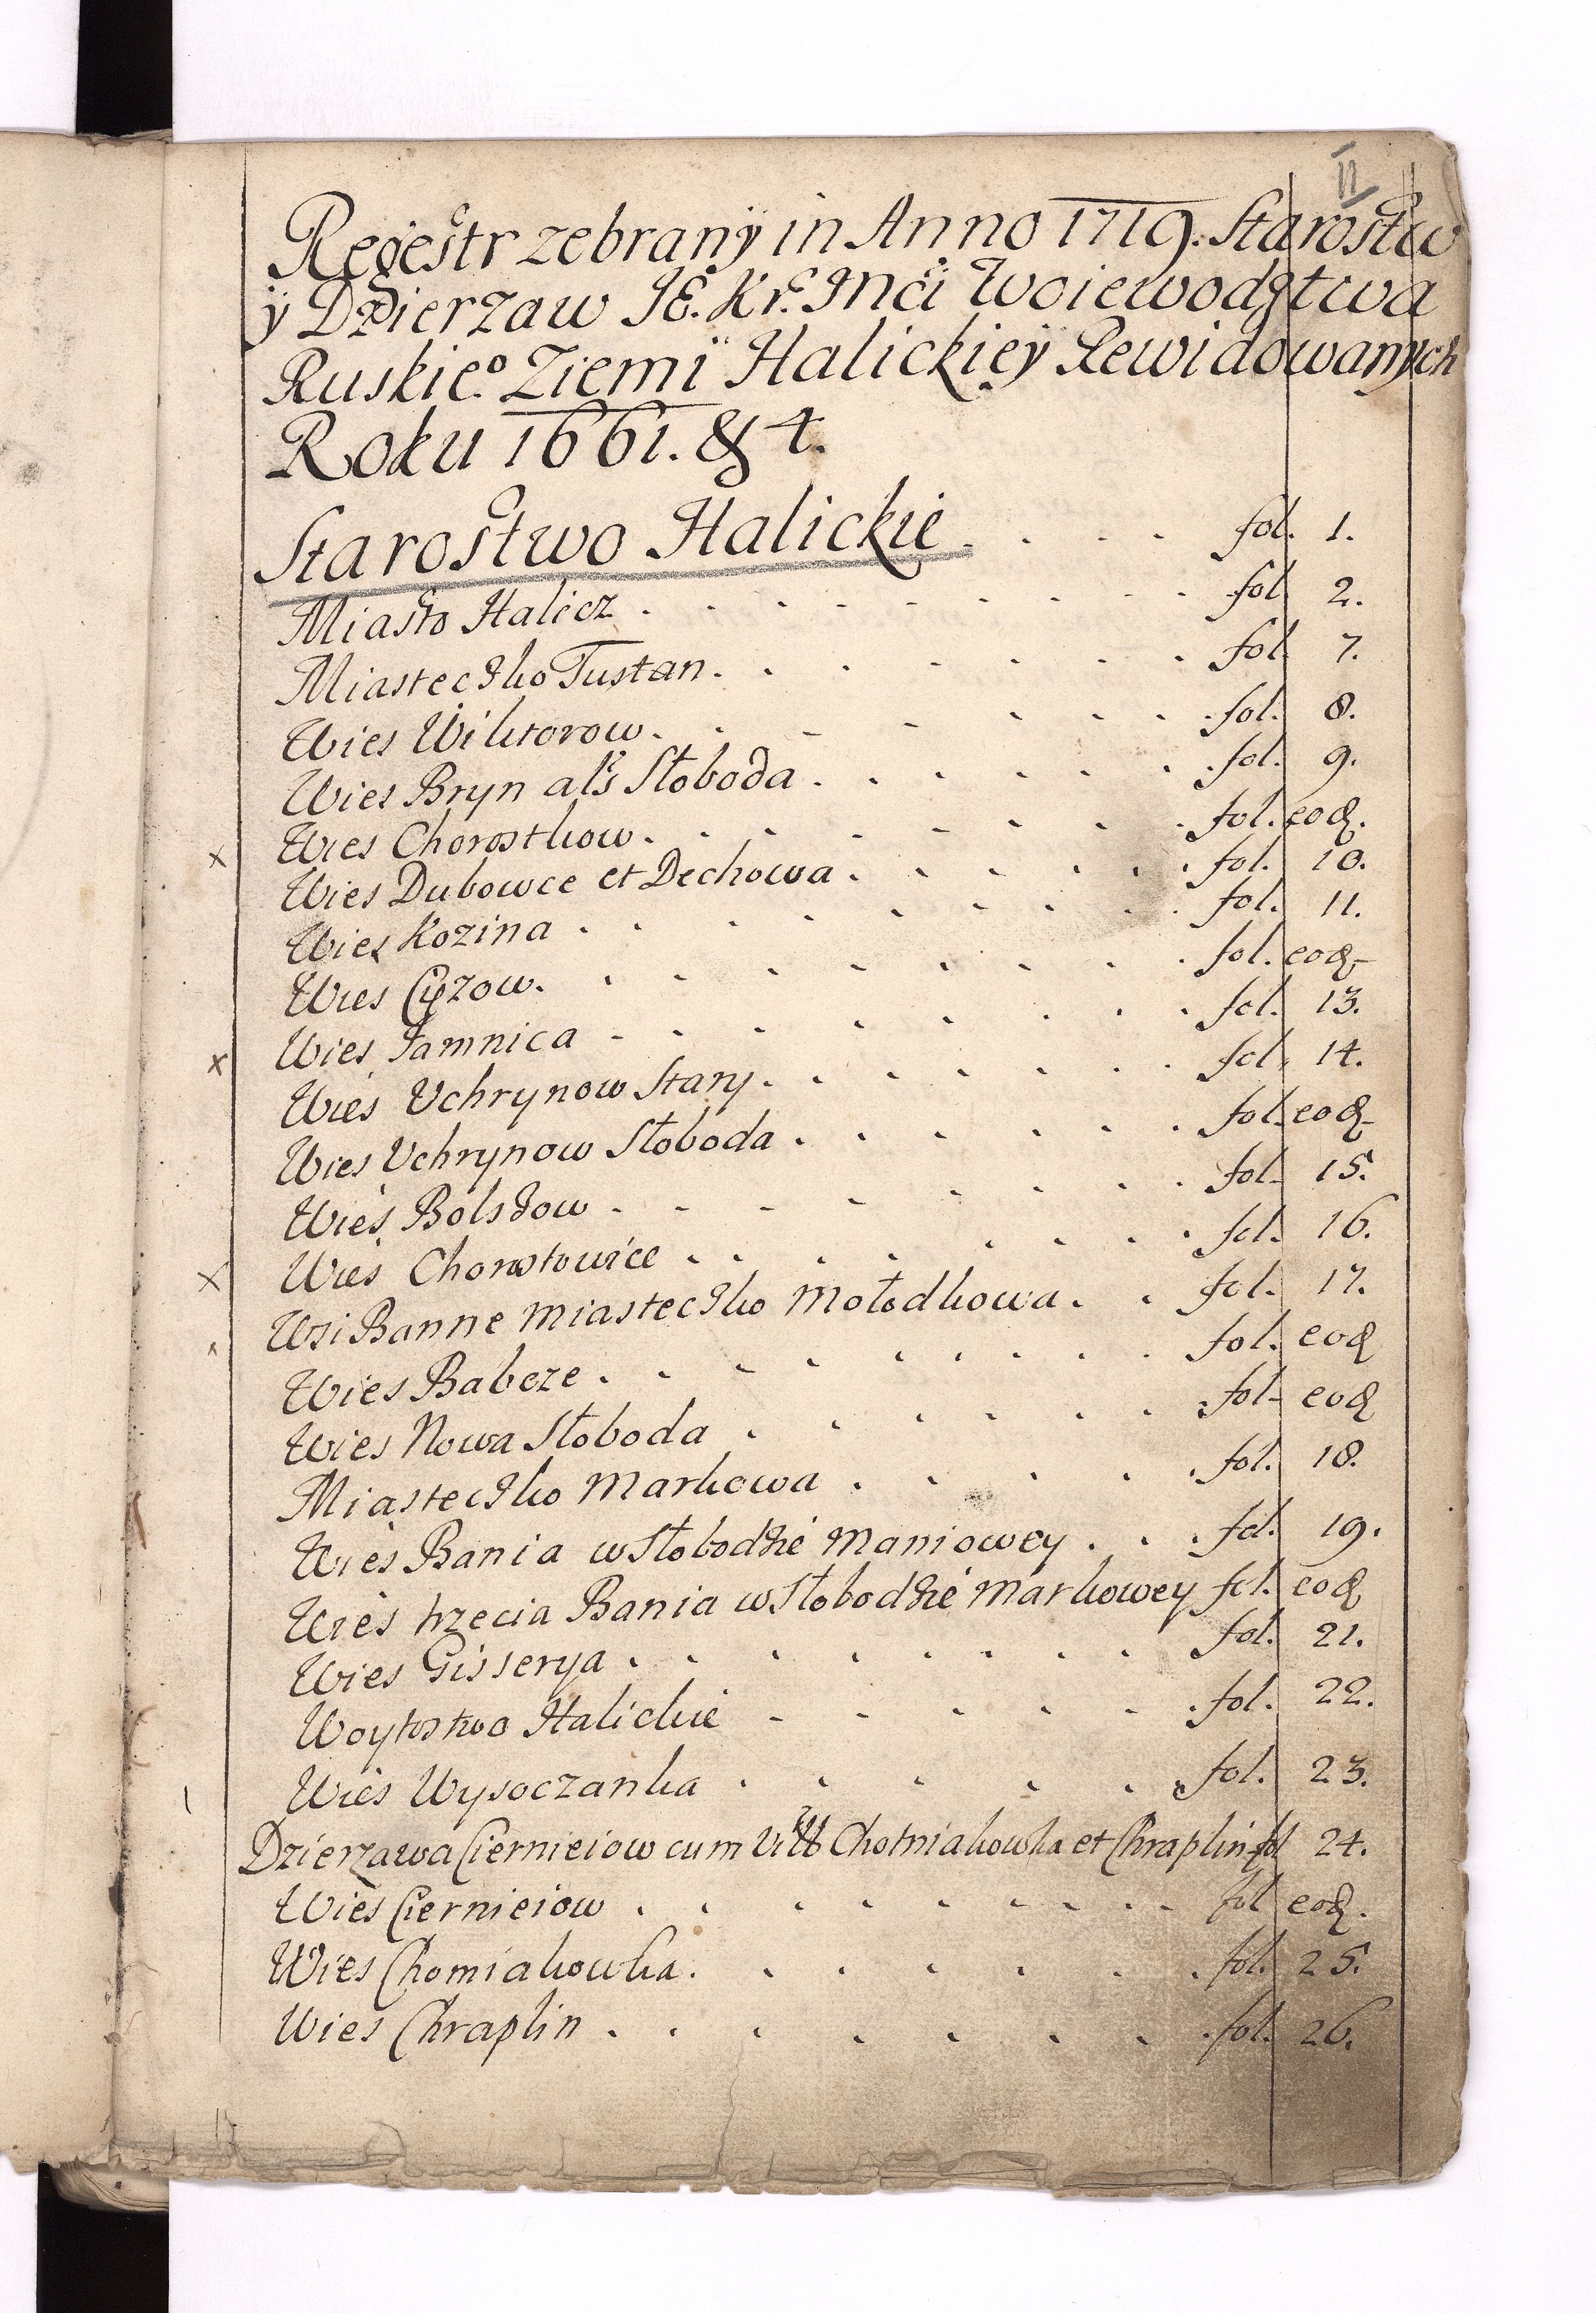 II
Regestr zebrany in Anno 1719. Starostw
y Dzierzaw JE. Kr. Mci Woiewodztwa
Ruskieo. Ziemi Halickiey Rewidowanych
Roku 1661. & 4.
Starostwo Halickie . . . . fol. 1.
Miasto Halicz . . . . . . . . . fol. 2.
Miasteczko Tustan . . . . . . . fol. 7.
Wies Wiktorow . . . . . . . fol. 8.
Wies Bryn als Słoboda . . . . . . fol. 9.
Wies Chorostkow . . . . . . . fol. eod.
x Wies Dubowce et Dechowa . . . . . . fol. 10.
Wies Kozina . . . . . . . . fol. 11.
Wies Cyzow . . . . . . . . fol. eod.
Wies Jamnica . . . . . . . . fol. 13.
x Wies Uchrynow Stary . . . . . . . fol. 14.
Wies Uchrynow Słoboda . . . . . . fol. eod.
Wies Bolszow . . . . . . . fol. 15.
Wies Chorostowice . . . . . . . fol. 16.
x Wsi Banne Miasteczko Mołodkowa . . fol. 17.
Wies Babcze . . . . . . . . fol. eod
Wies Nowa Słoboda . . . . . . fol. eod
Miasteczko Markowa . . . . . fol. 18.
Wies Bania w Słobodzie Maniowey . . . fol. 19.
Wies trzecia Bania w Słobodzie Markowey fol. eod
Wies Gisserya . . . . . . . fol. 21.
Woytostwo Halickie . . . . . . fol. 22.
Wies Wysoczanka . . . . . . fol. 23.
Dzierzawa Ciernieiow cum Chomiakowka et Chraplin fol 24.
Wies Ciernieiow . . . . . . . . fol eod.
Wies Chomiakowka . . . . . . . fol. 25.
Wies Chraplin . . . . . . . . fol. 26.